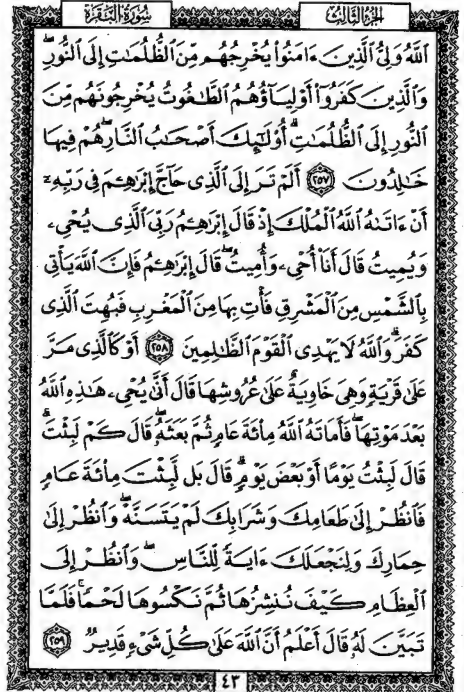 الجزء الثالث
سورة البقرة
ٱللَّهُ وَلِىُّ ٱلَّذِينَ ءَامَنُوا۟ يُخْرِجُهُم مِّنَ ٱلظُّلُمَٰتِ إِلَى ٱلنُّورِ ۖ
وَٱلَّذِينَ كَفَرُوٓا۟ أَوْلِيَآؤُهُمُ ٱلطَّٰغُوتُ يُخْرِجُونَهُم مِّنَ
ٱلنُّورِ إِلَى ٱلظُّلُمَٰتِ ۗ أُو۟لَٰٓئِكَ أَصْحَٰبُ ٱلنَّارِ ۖ هُمْ فِيهَا
خَٰلِدُونَ ﴿٢٥٧﴾ أَلَمْ تَرَ إِلَى ٱلَّذِى حَآجَّ إِبْرَٰهِـۧمَ فِى رَبِّهِۦٓ
أَنْ ءَاتَىٰهُ ٱللَّهُ ٱلْمُلْكَ إِذْ قَالَ إِبْرَٰهِـۧمُ رَبِّىَ ٱلَّذِى يُحْىِۦ
وَيُمِيتُ قَالَ أَنَا۠ أُحْىِۦ وَأُمِيتُ ۖ قَالَ إِبْرَٰهِـۧمُ فَإِنَّ ٱللَّهَ يَأْتِى
بِٱلشَّمْسِ مِنَ ٱلْمَشْرِقِ فَأْتِ بِهَا مِنَ ٱلْمَغْرِبِ فَبُهِتَ ٱلَّذِى
كَفَرَ ۗ وَٱللَّهُ لَا يَهْدِى ٱلْقَوْمَ ٱلظَّٰلِمِينَ ﴿٢٥٨﴾ أَوْ كَٱلَّذِى مَرَّ
عَلَىٰ قَرْيَةٍ وَهِىَ خَاوِيَةٌ عَلَىٰ عُرُوشِهَا قَالَ أَنَّىٰ يُحْىِۦ هَٰذِهِ ٱللَّهُ
بَعْدَ مَوْتِهَا ۖ فَأَمَاتَهُ ٱللَّهُ مِا۟ئَةَ عَامٍ ثُمَّ بَعَثَهُۥ ۖ قَالَ كَمْ لَبِثْتَ ۖ
قَالَ لَبِثْتُ يَوْمًا أَوْ بَعْضَ يَوْمٍ ۖ قَالَ بَل لَّبِثْتَ مِا۟ئَةَ عَامٍ
فَٱنظُرْ إِلَىٰ طَعَامِكَ وَشَرَابِكَ لَمْ يَتَسَنَّهْ ۖ وَٱنظُرْ إِلَىٰ
حِمَارِكَ وَلِنَجْعَلَكَ ءَايَةً لِّلنَّاسِ ۖ وَٱنظُرْ إِلَى
ٱلْعِظَامِ كَيْفَ نُنشِزُهَا ثُمَّ نَكْسُوهَا لَحْمًا ۚ فَلَمَّا
تَبَيَّنَ لَهُۥ قَالَ أَعْلَمُ أَنَّ ٱللَّهَ عَلَىٰ كُلِّ شَىْءٍ قَدِيرٌ ﴿٢٥٩﴾
٤٣